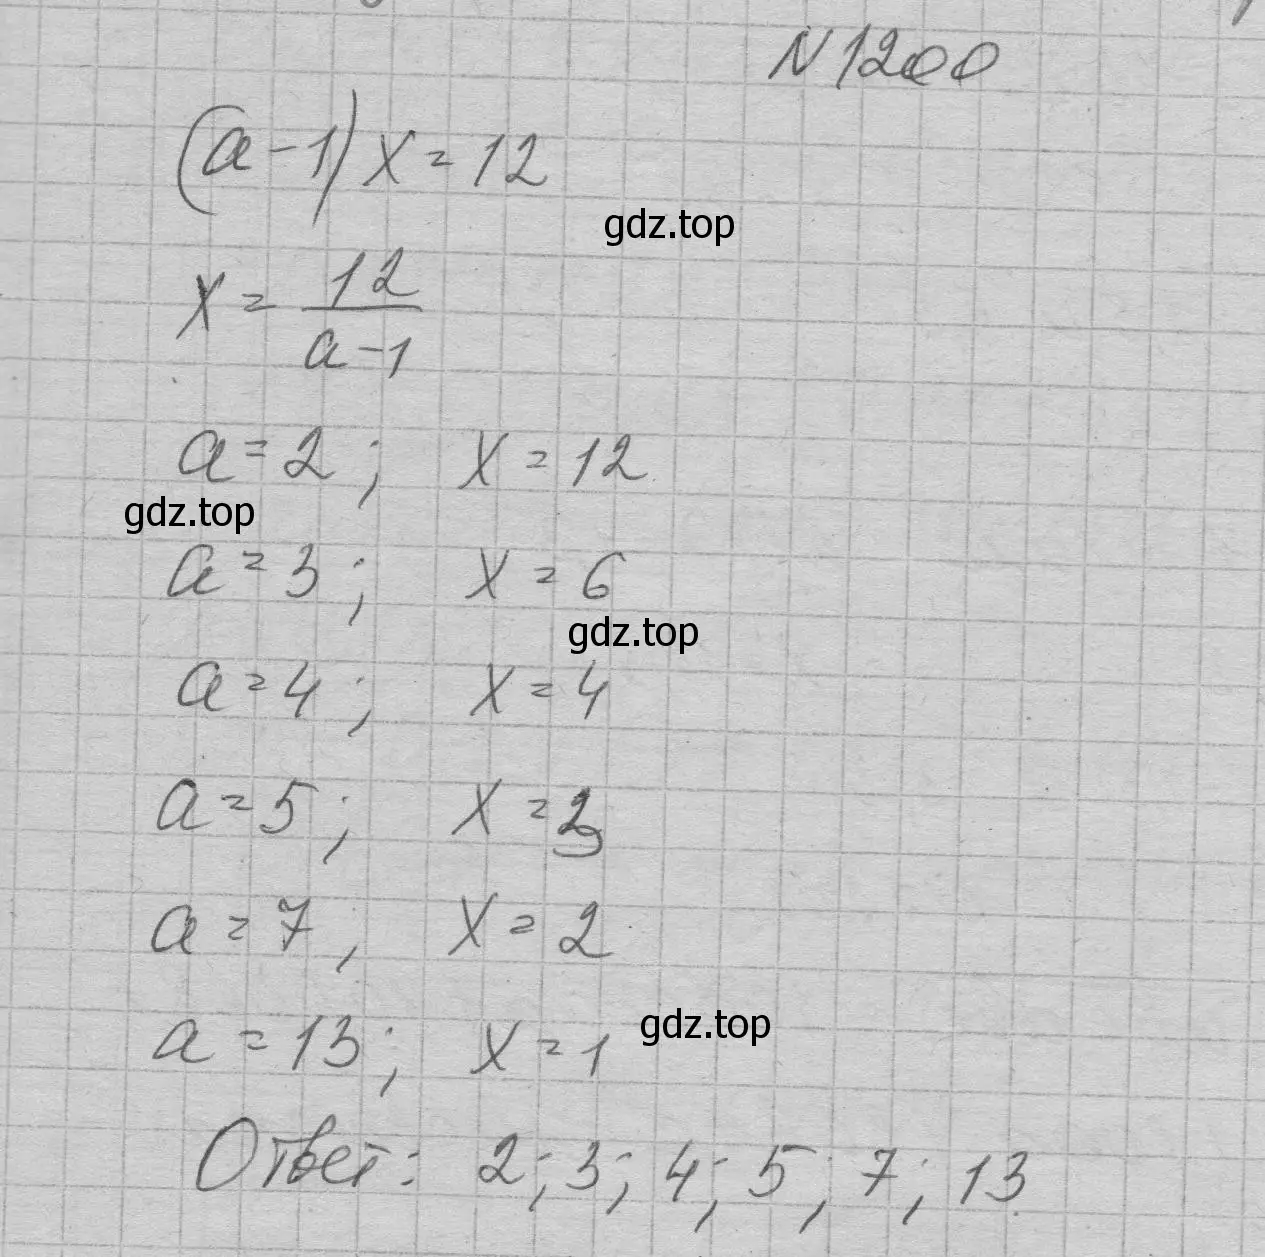 N 1200
(a-1)x=12
gdz.top
x = 12/(a-1)
a=2; x=12
gdz.top
a=3; x=6
gdz.top
a=4; x=4
a=5; x=3
a=7, x=2
a=13; x=1
gdz.top
Ответ: 2; 3; 4; 5; 7; 13